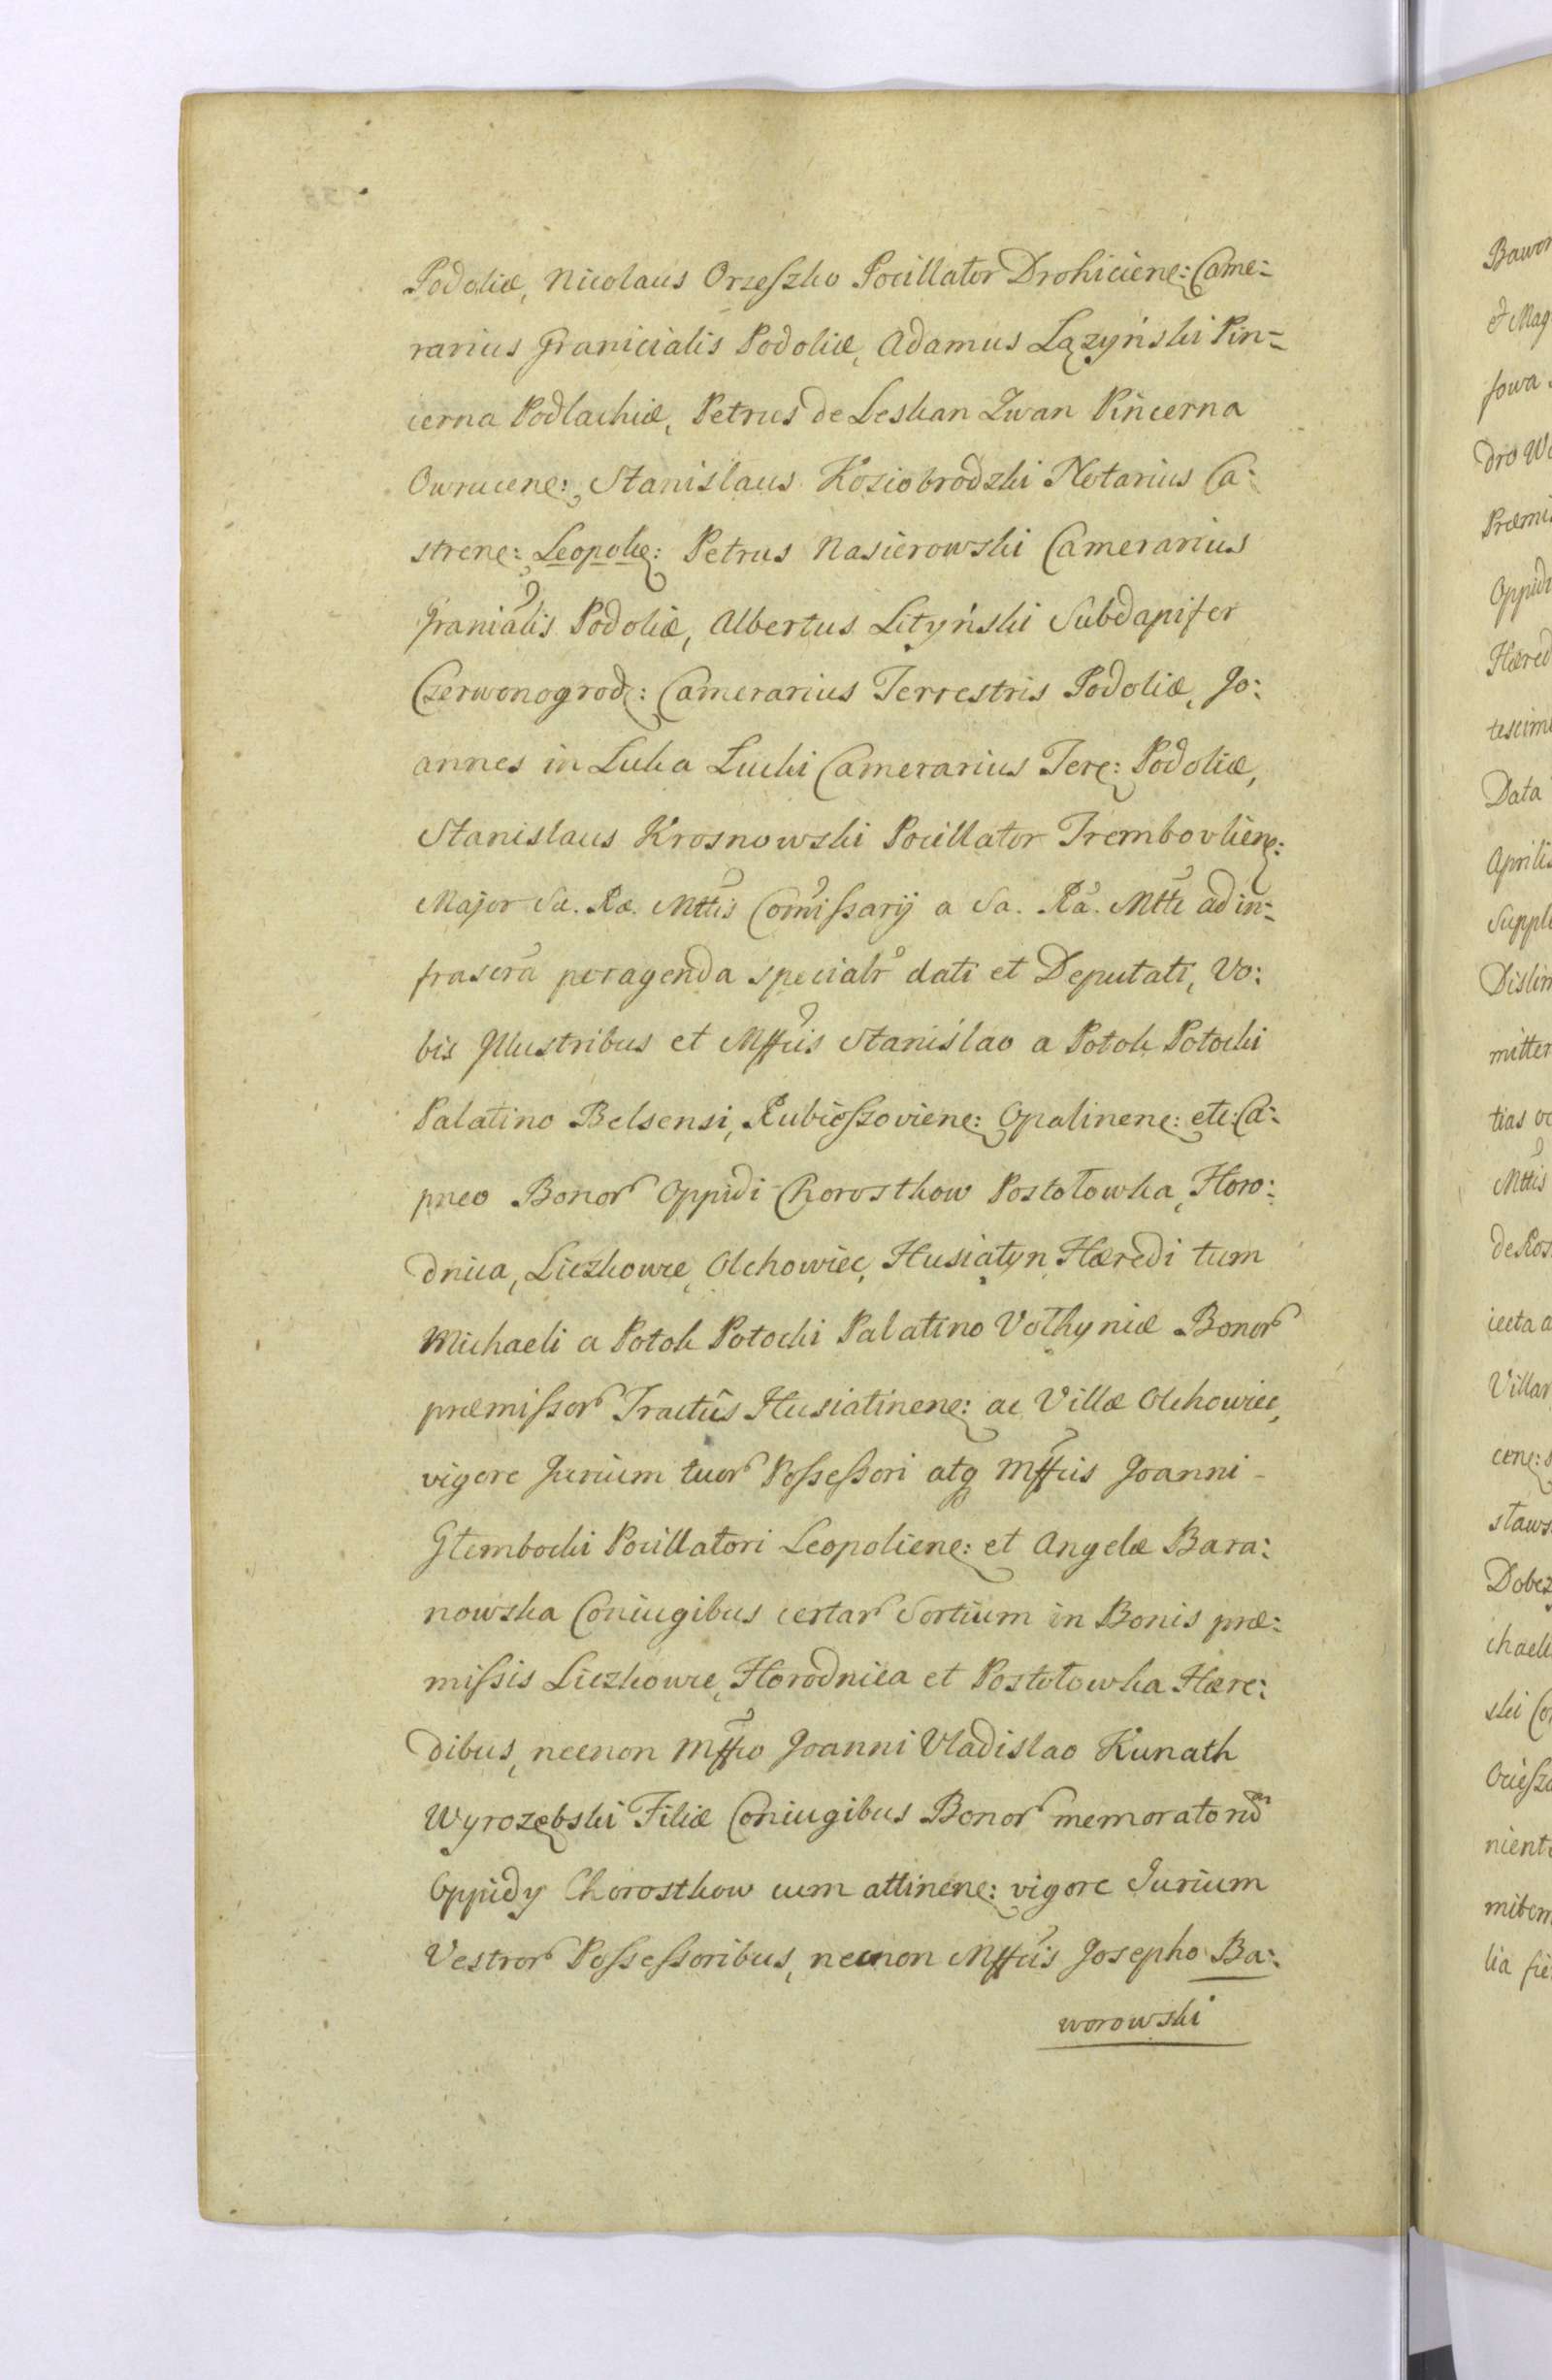 Podoliæ, Nicolaus Orzeszko Pocillator Drohiciene: Came=
rarius Granicialis Podoliæ, Adamus Łązyński Pin=
cerna Podlachiæ, Petrus de Leskan Zwan Pincerna
Owrucene: Stanislaus Koziobrodzki Notarius Ca:
strene: Leopolie: Petrus Nasierowski Camerarius
Granialis Podoliæ, Albertus Lityński Subdapifer
Czerwonogrod: Camerarius Terrestris Podoliæ, Jo:
annes in Luka Lucki Camerarius Tere: Podoliæ,
Stanislaus Krosnowski Pocillator Trembovliene:
Major Sa. Ræ. Mttis Comissarij a Sa. Ra. Mtte ad in=
frascra peragenda specialr dati et Deputati, Vo:
bis Illustribus et Mffcis Stanislao a Potok Potocki
Palatino Belsensi, Rubieszoviene: Opalinene: etc: Ca:
pneo Bonor Oppidi Chorostkow Postołowka, Horo:
dnica, Liczkowce, Olchowiec, Husiatyn Hæredi tum
Michaeli a Potok Potocki Palatino Volhyniæ Bonor
præmissor Tractûs Husiatinene: ac Villæ Olchowiec,
vigore Jurium tuor Possessori atq Mffcis Joanni
Głembocki Pocillatori Leopoliene: et Angelæ Bara:
nowska Coniugibus certar Sortium in Bonis præ:
missis Liczkowce, Horodnica et Postołowka Hære:
dibus, necnon Mffco Joanni Vladislao Kunath
Wyrozębski Filiæ Coniugibus Bonor memorator
Oppidy Chorostkow cum attinene: vigore Jurium
Vestror Possessoribus, necnon Mffcis Josepho Ba:
worowski